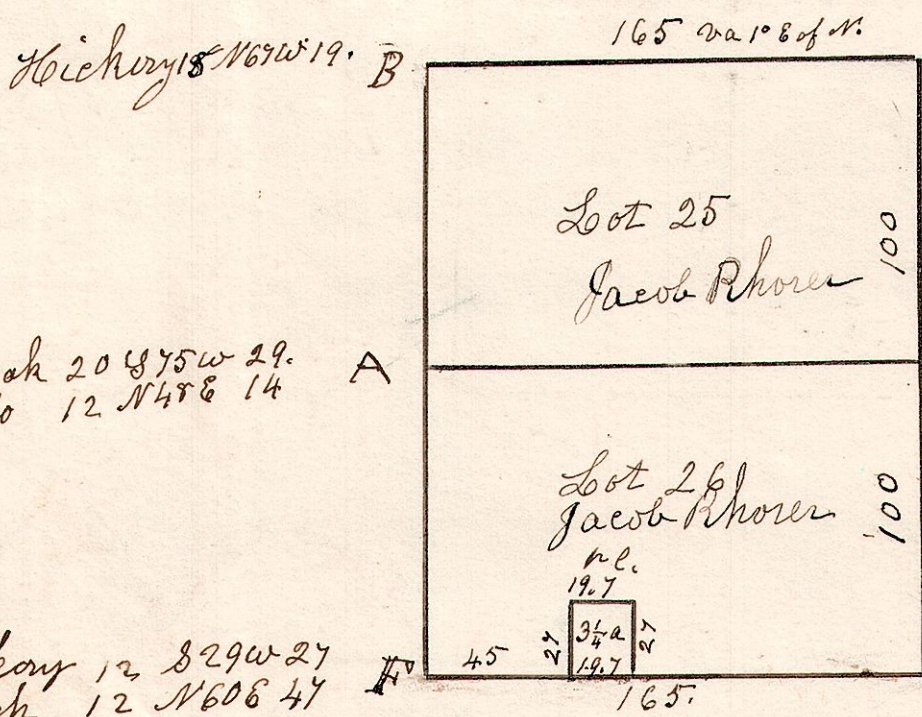 165 va 1° E of N.
Hickory 18 N67W 19. B
Lot 25
100
Jacob Rhorer
20 S75W 29. A
12 N48E 14
Lot 26
Jacob Rhorer
100
19.7
27 3¼ a 27
45 19.7
12 S29W 27
12 N60E 47
165.